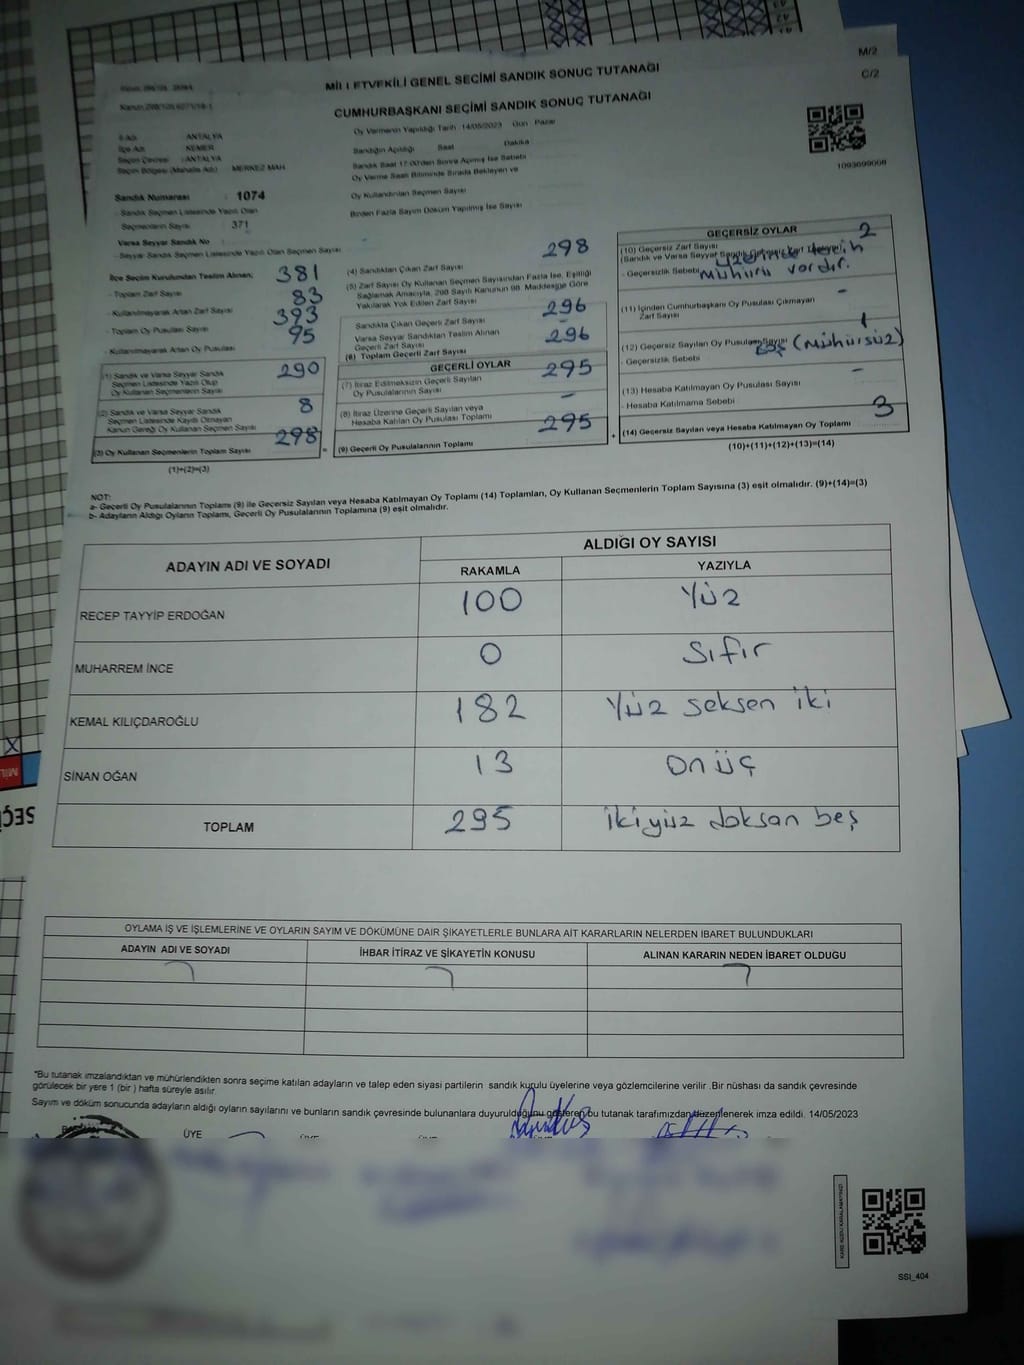 M/2
MİLLETVEKİLİ GENEL SEÇİMİ SANDIK SONUÇ TUTANAĞI
C/2
CUMHURBAŞKANI SEÇİMİ SANDIK SONUÇ TUTANAĞI
Oy Vermenin Yapıldığı Tarih 14/05/2023 Gün : Pazar
İl Adı ANTALYA
İlçe Adı KEMER
Seçim Çevresi : ANTALYA
Seçim Bölgesi (Mahalle Adı) MERKEZ MAH
Sandığın Açıldığı Saat Dakika
Sandık Saat 17:00'den Sonra Açılmış İse Sebebi
Oy Verme Saati Bitiminde Sırada Bekleyen ve
Oy Kullandırılan Seçmen Sayısı
Birden Fazla Sayım Döküm Yapılmış İse Sayısı
1093699008
Sandık Numarası : 1074
- Sandık Seçmen Listesinde Yazılı Olan
Seçmenlerin Sayısı 371
Varsa Seyyar Sandık No
- Seyyar Sandık Seçmen Listesinde Yazılı Olan Seçmen Sayısı
İlçe Seçim Kurulundan Teslim Alınan;
- Toplam Zarf Sayısı 381
- Kullanılmayarak Artan Zarf Sayısı 83
- Toplam Oy Pusulası Sayısı 393
- Kullanılmayarak Artan Oy Pusulası 95
(1) Sandık ve Varsa Seyyar Sandık
Seçmen Listesinde Yazılı Olup
Oy Kullanan Seçmenlerin Sayısı 290
(2) Sandık ve Varsa Seyyar Sandık
Seçmen Listesinde Kayıtlı Olmayan
Kanun Gereği Oy Kullanan Seçmen Sayısı 8
(3) Oy Kullanan Seçmenlerin Toplam Sayısı 298
(1)+(2)=(3)
(4) Sandıktan Çıkan Zarf Sayısı 298
(5) Zarf Sayısı Oy Kullanan Seçmen Sayısından Fazla İse, Eşitliği
Sağlamak Amacıyla, 298 Sayılı Kanunun 98. Maddesine Göre
Yakılarak Yok Edilen Zarf Sayısı -
Sandıkta Çıkan Geçerli Zarf Sayısı 296
Varsa Seyyar Sandıktan Teslim Alınan
Geçerli Zarf Sayısı -
(6) Toplam Geçerli Zarf Sayısı 296
GEÇERLİ OYLAR
(7) İtiraz Edilmeksizin Geçerli Sayılan
Oy Pusulalarının Sayısı 295
(8) İtiraz Üzerine Geçerli Sayılan veya
Hesaba Katılan Oy Pusulası Toplamı -
= (9) Geçerli Oy Pusulalarının Toplamı 295 +
GEÇERSİZ OYLAR
(10) Geçersiz Zarf Sayısı 2
- Geçersizlik Sebebi Üzerinde tercih
mührü vardır.
(11) İçinden Cumhurbaşkanı Oy Pusulası Çıkmayan
Zarf Sayısı -
(12) Geçersiz Sayılan Oy Pusulası Sayısı 1
- Geçersizlik Sebebi Boş (Mühürsüz)
(13) Hesaba Katılmayan Oy Pusulası Sayısı -
- Hesaba Katılmama Sebebi
(14) Geçersiz Sayılan veya Hesaba Katılmayan Oy Toplamı 3
(10)+(11)+(12)+(13)=(14)
NOT:
a- Geçerli Oy Pusulalarının Toplamı (9) ile Geçersiz Sayılan veya Hesaba Katılmayan Oy Toplamı (14) Toplamları, Oy Kullanan Seçmenlerin Toplam Sayısına (3) eşit olmalıdır. (9)+(14)=(3)
b- Adayların Aldığı Oyların Toplamı, Geçerli Oy Pusulalarının Toplamına (9) eşit olmalıdır.
ADAYIN ADI VE SOYADI ALDIĞI OY SAYISI
RAKAMLA YAZIYLA
RECEP TAYYİP ERDOĞAN 100 Yüz
MUHARREM İNCE 0 Sıfır
KEMAL KILIÇDAROĞLU 182 Yüz seksen iki
SİNAN OĞAN 13 Onüç
TOPLAM 295 ikiyüz doksan beş
OYLAMA İŞ VE İŞLEMLERİNE VE OYLARIN SAYIM VE DÖKÜMÜNE DAİR ŞİKAYETLERLE BUNLARA AİT KARARLARIN NELERDEN İBARET BULUNDUKLARI
ADAYIN ADI VE SOYADI İHBAR İTİRAZ VE ŞİKAYETİN KONUSU ALINAN KARARIN NEDEN İBARET OLDUĞU
*Bu tutanak imzalandıktan ve mühürlendikten sonra seçime katılan adayların ve talep eden siyasi partilerin sandık kurulu üyelerine veya gözlemcilerine verilir .Bir nüshası da sandık çevresinde
görülecek bir yere 1 (bir ) hafta süreyle asılır.
Sayım ve döküm sonucunda adayların aldığı oyların sayılarını ve bunların sandık çevresinde bulunanlara duyurulduğunu gösteren bu tutanak tarafımızdan düzenlenerek imza edildi. 14/05/2023
ÜYE
SSI_404